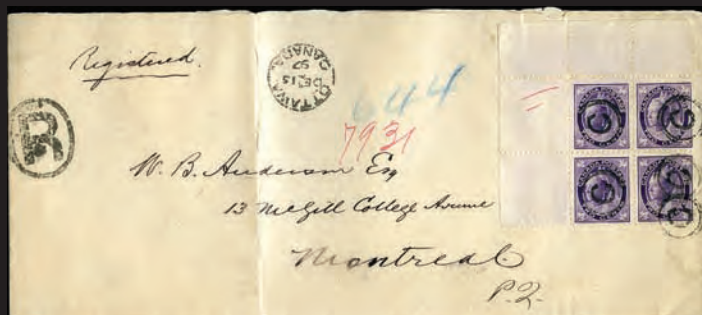 Registered.
OTTAWA
DE 15
97
CANADA
R
644
7931
W. B. Anderson Esq
13 McGill College Avenue
Montreal
P.Q.